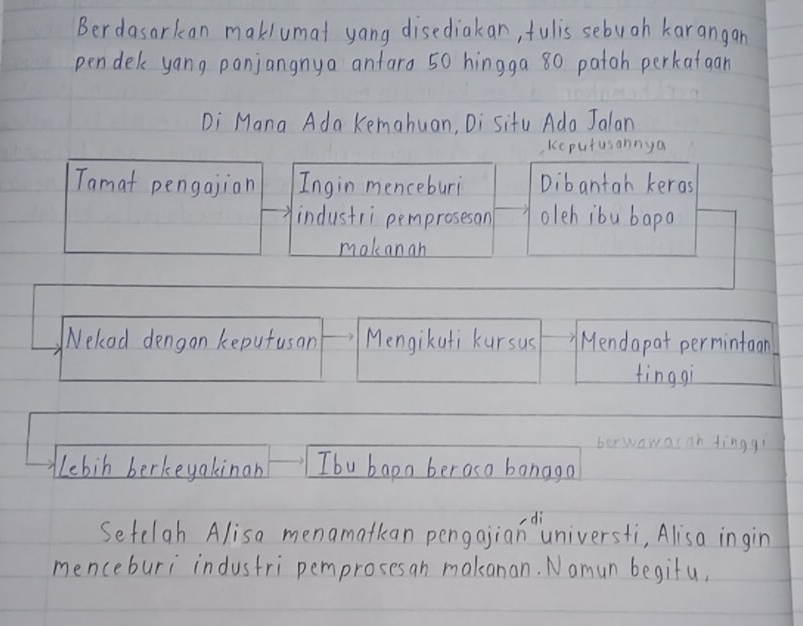 Berdasarkan maklumat yang disediakan, tulis sebuah karangan
pendek yang panjangnya antara 50 hingga 80 patah perkataan
Di Mana Ada Kemahuan, Di Situ Ada Jalan
keputusannya
Tamat pengajian
Ingin menceburi
industri pemprosesan
makanan
Dibantah keras
oleh ibu bapa
Nekad dengan keputusan
Mengikuti kursus
Mendapat permintaan
tinggi
berwawasan tinggi
Lebih berkeyakinan
Ibu bapa berasa bangga
Setelah Alisa menamatkan pengajian di universti, Alisa ingin
menceburi industri pemprosesan makanan. Namun begitu,